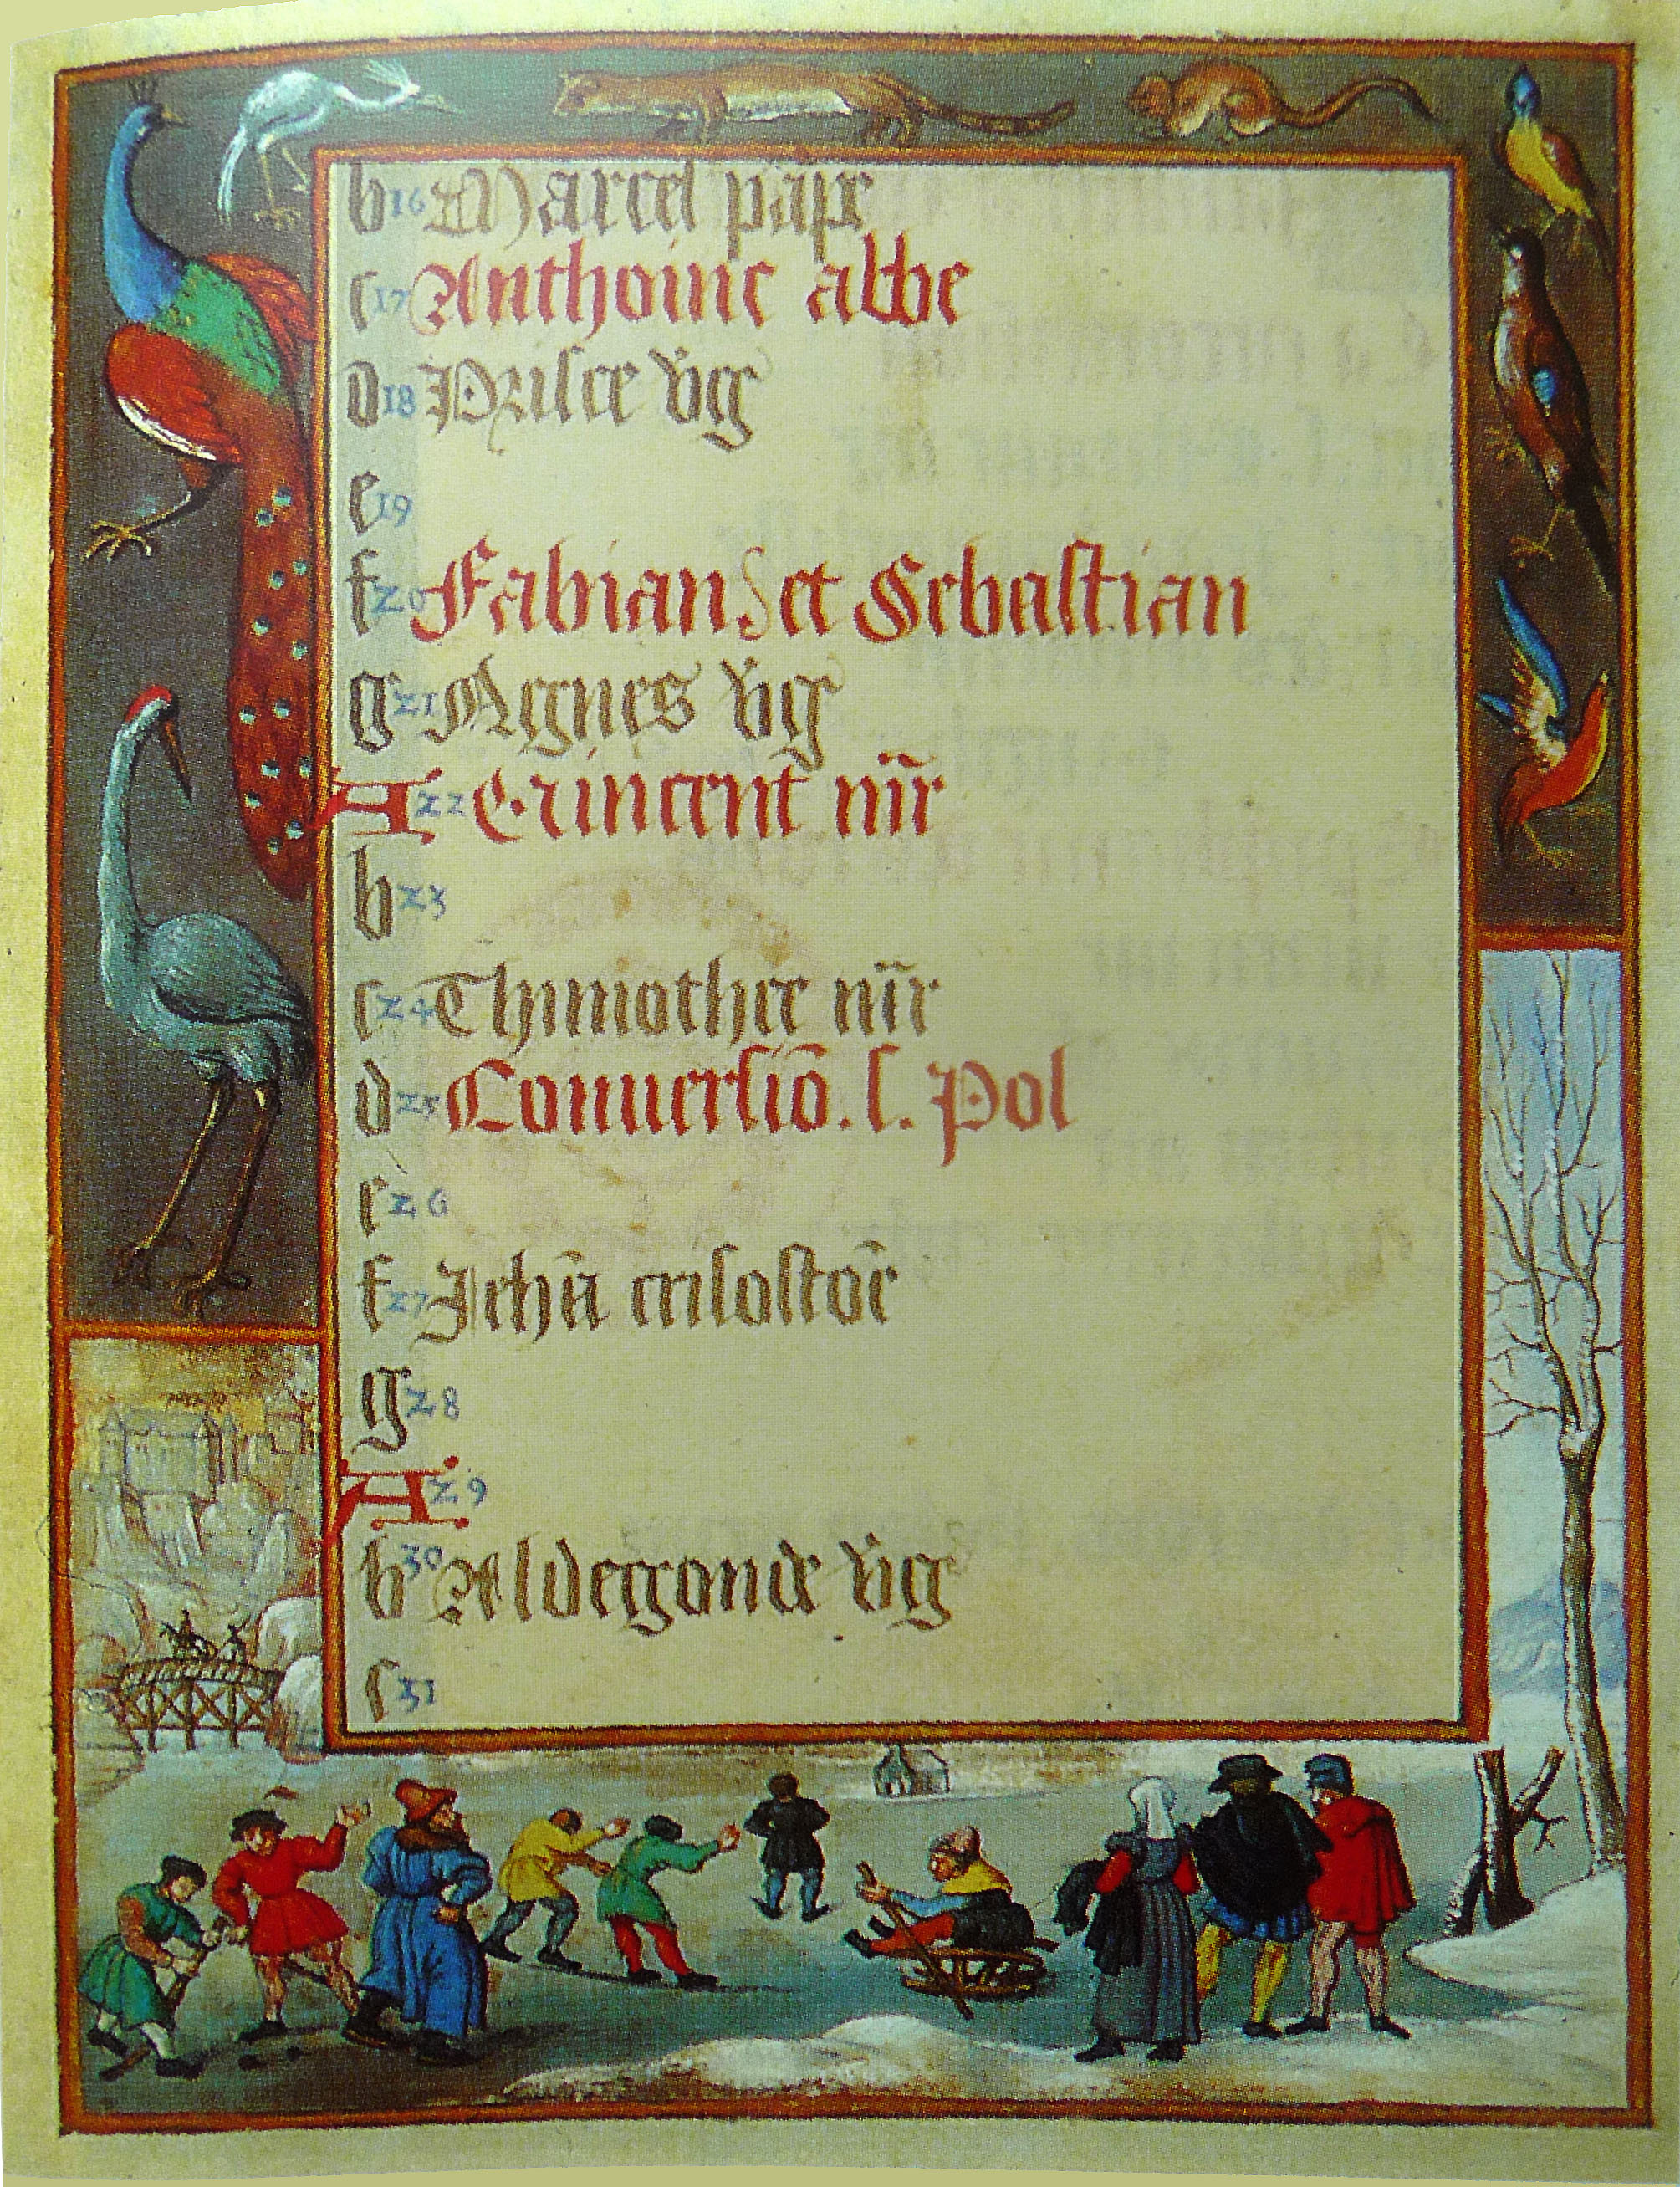 b 16 Marcel pape
c 17 Anthoine abbe
d 18 Prisce v̄ig
e 19
f 20 Fabian et Sebastian
g 21 Agnes v̄ig
A 22 Vincent m̄r
b 23
c 24 Thimothee m̄r
d 25 Conuersiō. s. Pol
e 26
f 27 Jehā crisostoē
g 28
A 29
b 30 Aldegonde v̄ig
c 31